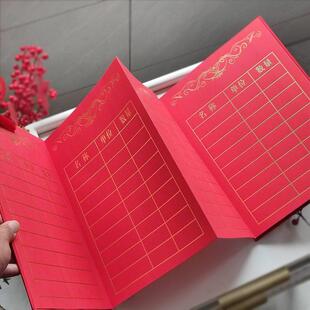 名称 单位 数量
名称 单位 数量